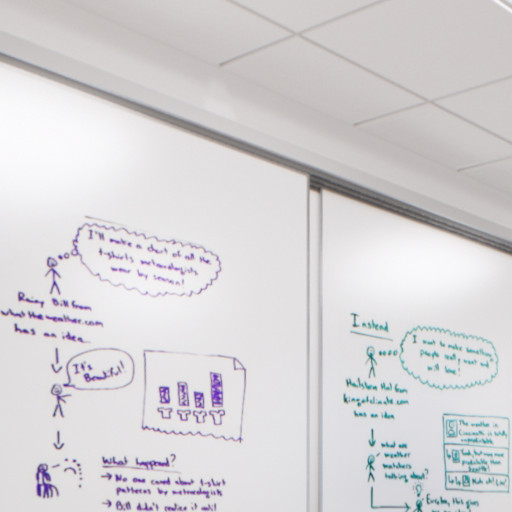 I'll make a chart of all the
t-shirts meteorologists
wear by season!
Rainy Bill from
whattheweather.com
has an idea.
It's
Beautiful!
What happened?
→ No one cared about t-shirt
patterns by meteorologists
→ Bill didn't realize it until
Instead
I want to make something
people really want and
will love!
Hailstorm Hal from
kingofclimate.com
has an idea
what are
weather
watchers
talking about?
The weather in
is totally
unpredictable